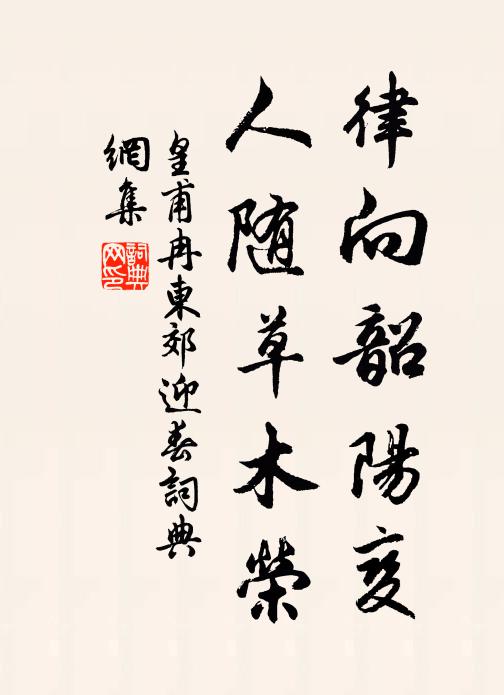 律向韶陽变
人随草木榮
皇甫冉東郊迎春詞典
網集
詞典
网印